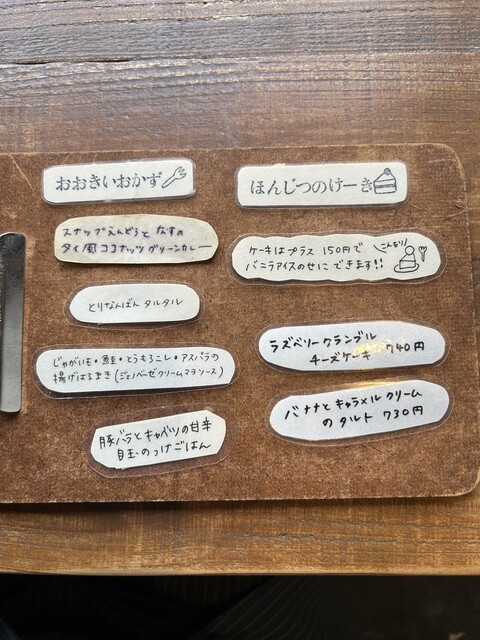 おおきいおかず
スナップえんどうと なすの
タイ風ココナッツグリーンカレー
とりなんばん タルタル
じゃがいも・鮭・とうもろこし・アスパラの
揚げはるまき(ジェノベーゼクリームマヨソース)
豚バラとキャベツの甘辛
目玉のっけごはん
ほんじつのけーき
ケーキはプラス 150円で
バニラアイスのせに できます!!
こんもり
ラズベリークランブル
チーズケーキ 740円
バナナとキャラメルクリーム
のタルト 730円